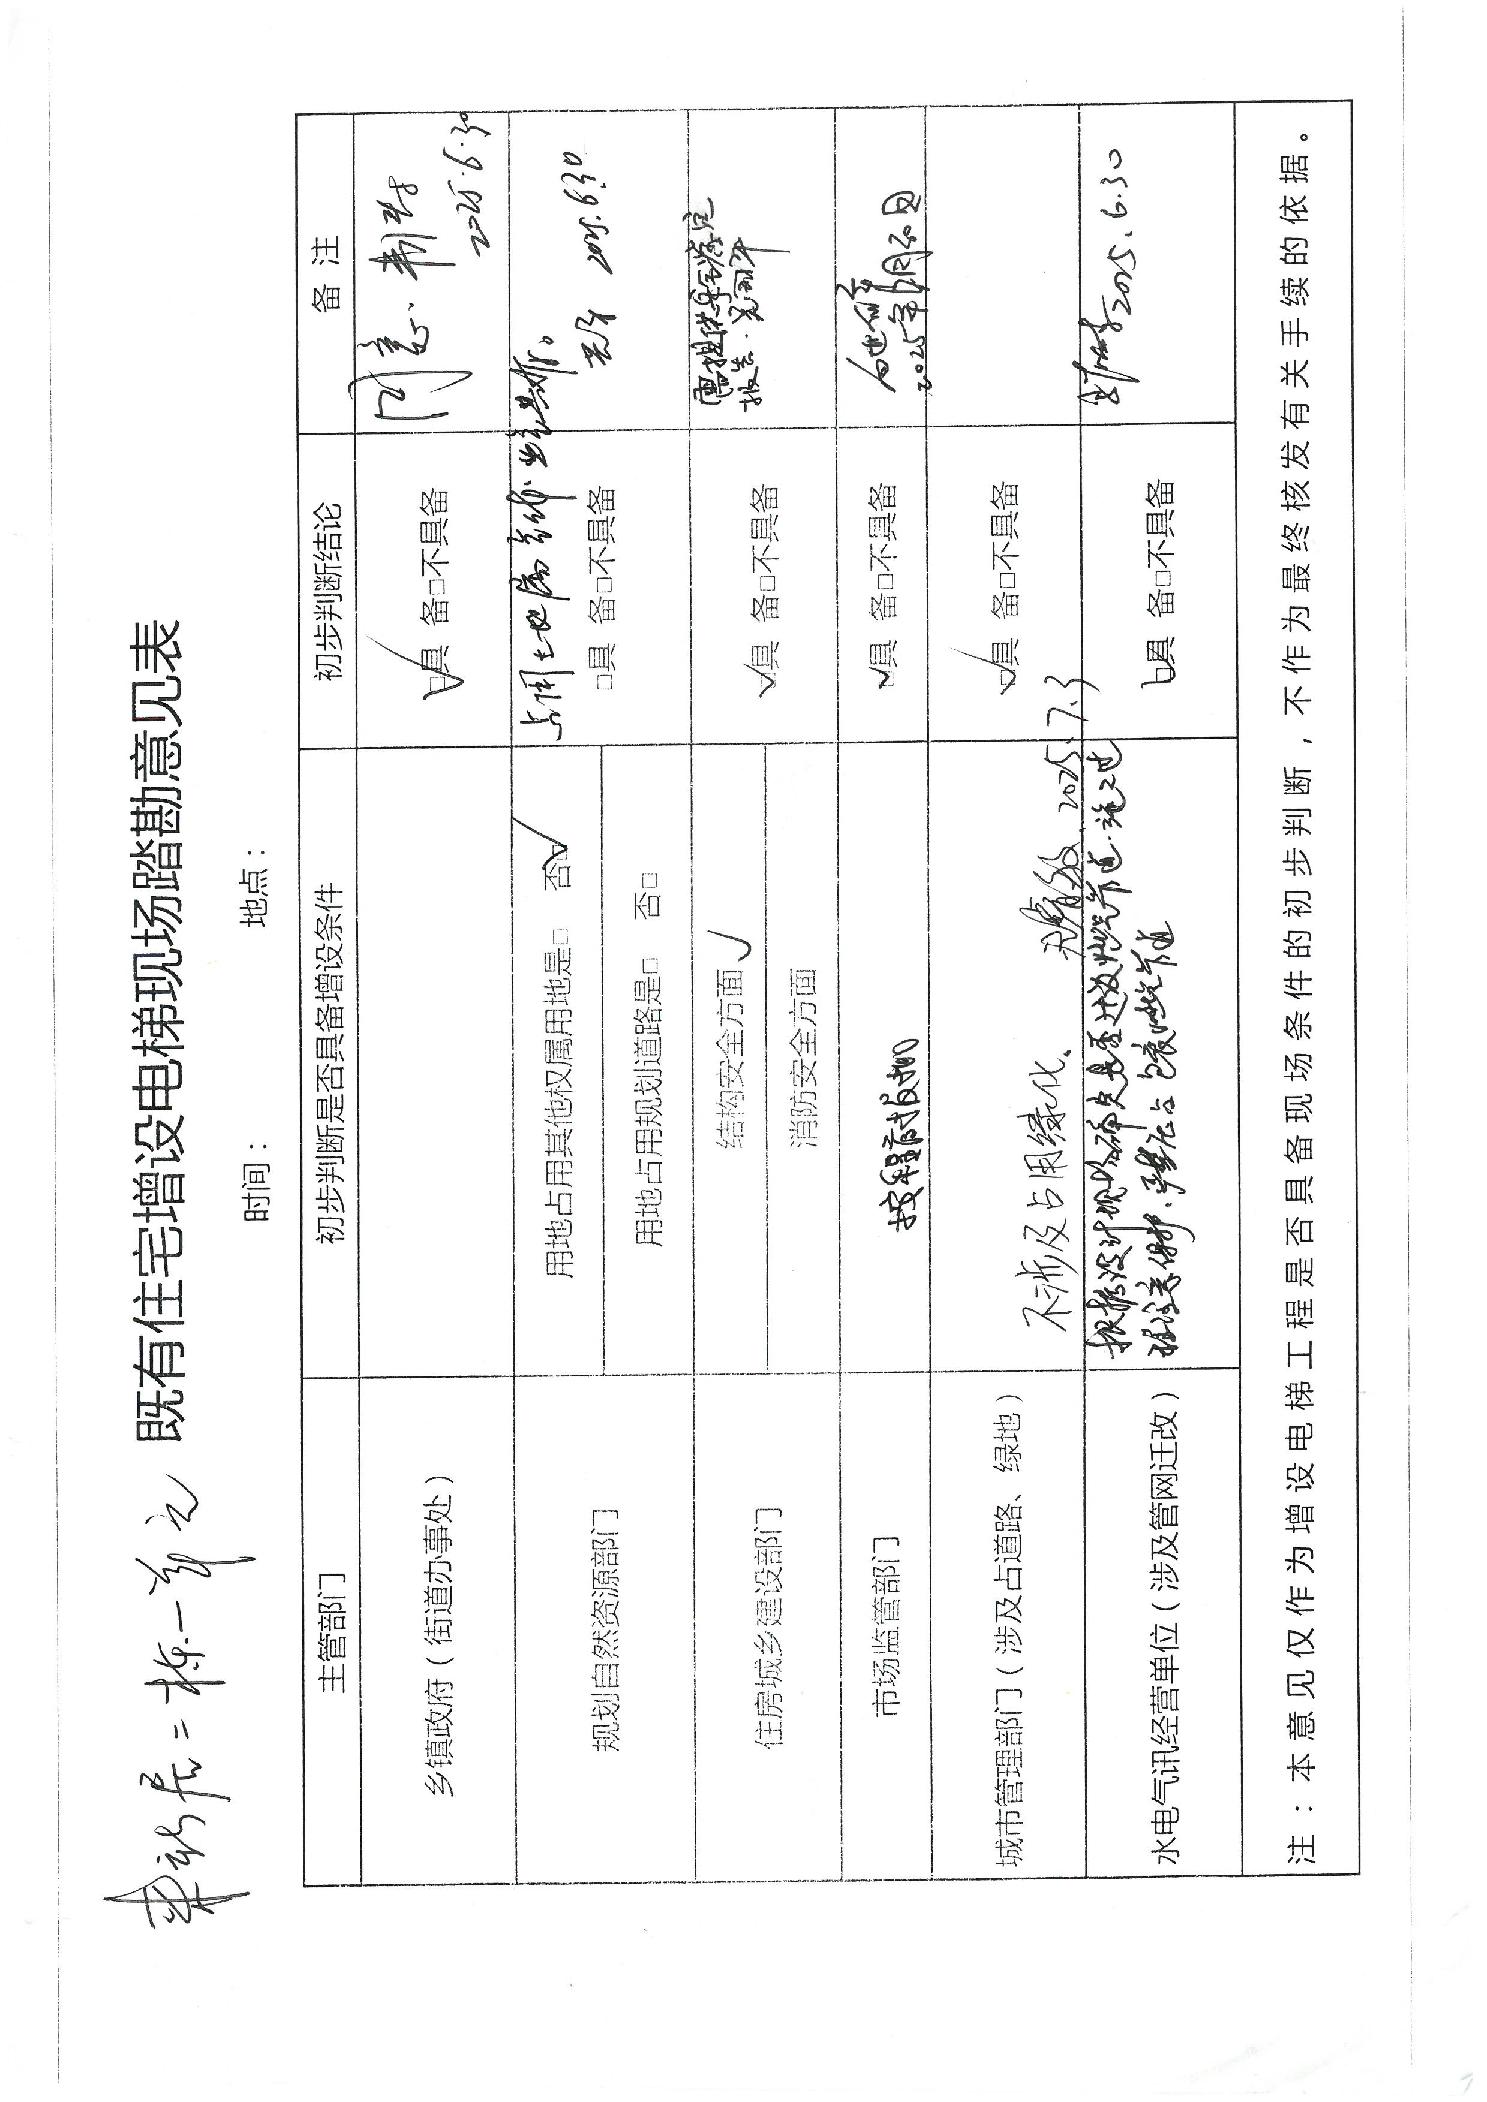 居二栋一单元 既有住宅增设电梯现场踏勘意见表
时间： 地点：
主管部门 初步判断是否具备增设条件 初步判断结论 备 注
乡镇政府（街道办事处） ☑具 备□不具备 同意. 2025.6.30
规划自然资源部门 用地占用其他权属用地是□ 否☑ 占用土地属 □具 备□不具备 2025.6.30
用地占用规划道路是□ 否□
住房城乡建设部门 结构安全方面 ✓ ☑具 备□不具备 需提供安全鉴定
报告.
消防安全方面
市场监管部门 按程序报 ☑具 备□不具备
2025年
城市管理部门（涉及占道路、绿地） 不涉及占用绿化、 2025.7.3 ☑具 备□不具备
水电气讯经营单位（涉及管网迁改） 根据设计现场确定是否涉及燃气管道.施工过
程注意保护.严禁占 燃气管道 ☑具 备□不具备 2025.6.30
注：本意见仅作为增设电梯工程是否具备现场条件的初步判断，不作为最终核发有关手续的依据。